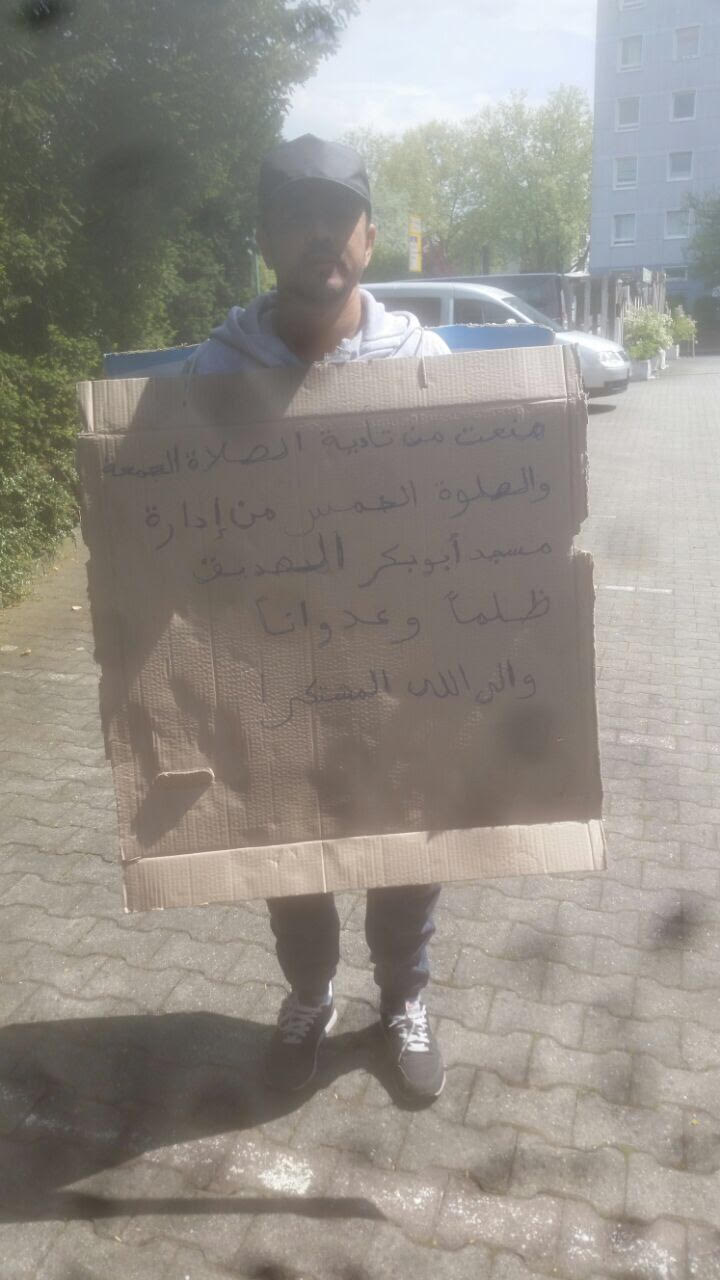 منعت من تأدية الصلاة الجمعة
والصلوة الخمس من إدارة
مسجد أبو بكر الصديق
ظلماً وعدواناً
والى الله المشتكى!